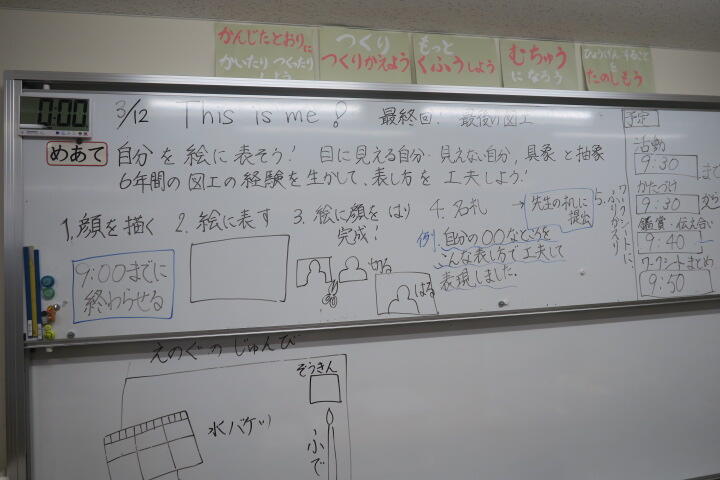 かんじたとおりに
かいたり つくったり
しよう
つくり
つくりかえよう
もっと
くふうしよう
むちゅう
になろう
ひょうげんすること
を
たのしもう
0:00
3/12 This is me! 最終回! 最後の図工
めあて 自分を絵に表そう! 目に見える自分・見えない自分, 具象と抽象
6年間の図工の経験を生かして、表し方を工夫しよう!
1. 顔を描く 2. 絵に表す 3. 絵に顔をはり 4. 名札
完成!
→ 先生の机に
提出
9:00までに
終わらせる
切る
はる
例. 自分の〇〇なところを
こんな表し方で工夫して
表現しました.
5.
予定
活動
9:30 まで
かたづけ
9:30 から
鑑賞・伝え合い
9:40
ワークシートまとめ
9:50
えのぐのじゅんび
ぞうきん
水バケツ
ふで